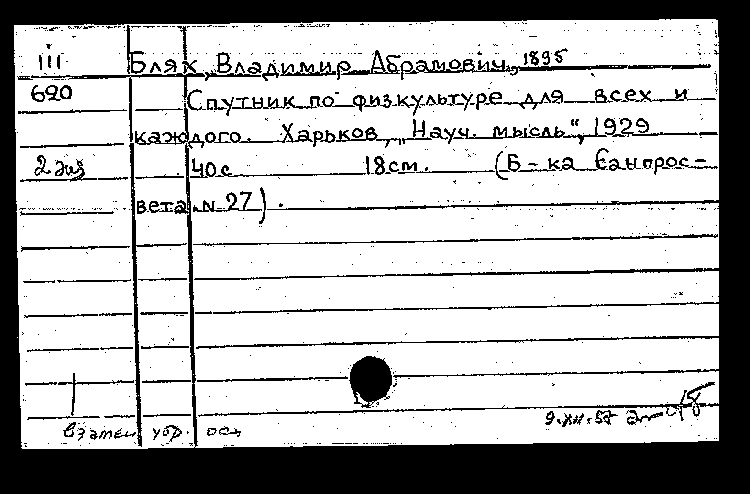 III Блях, Владимир Абрамович, 1895
690 Спутник по физкультуре для всех и
каждого. Харьков, „Науч. мысль“, 1929
2 экз 40с 18см. (Б-ка Санпрос-
вета N 27).
взамен убр. ост
9.XII.57